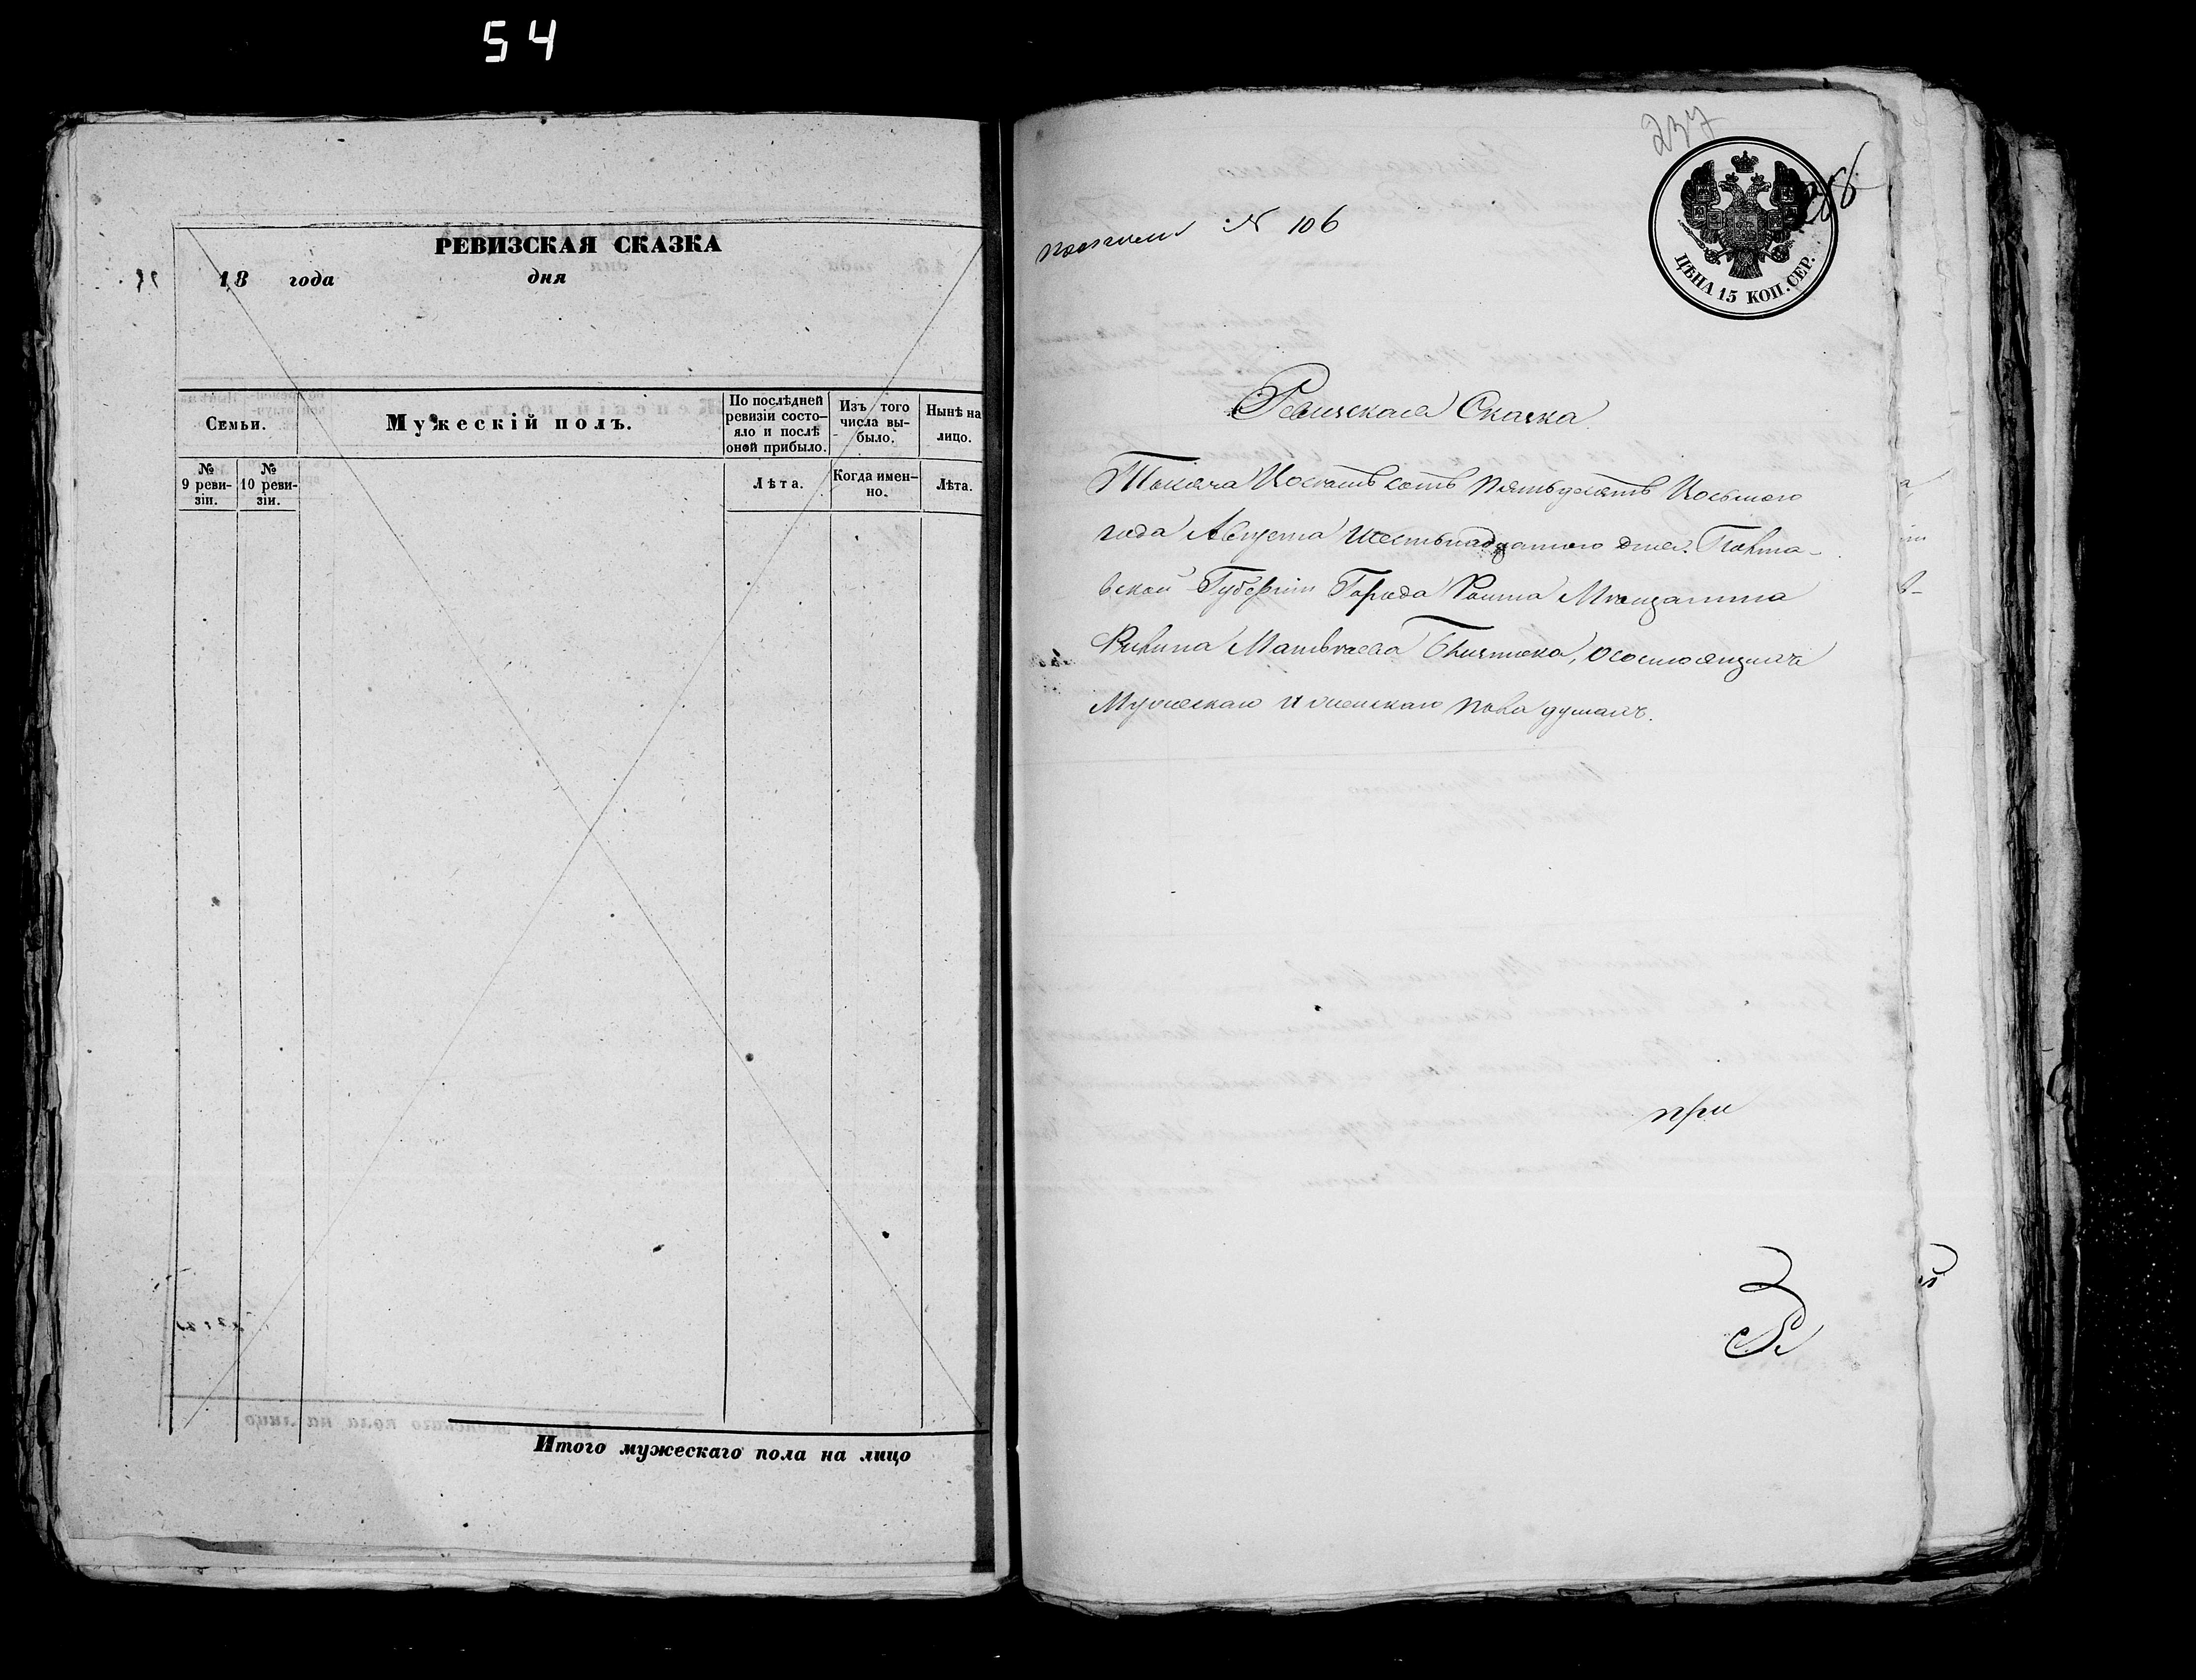 54
РЕВИЗСКАЯ СКАЗКА
18 года дня
Семьи.
Мужескій полъ.
По послѣдней ревизіи состо-
яло и послѣ оной прибыло.
Изъ того числа вы-
было.
Нынѣ на лицо.
№ 9 реви-
зіи.
№ 10 реви-
зіи.
Лѣта.
Когда имен-
но.
Лѣта.
Итого мужескаго пола на лицо
237
№ 106
ЦѢНА 15 КОП. СЕР.
Ревизская Сказка
Тысяча Восемьсотъ Пятьдесятъ Восьмого
года Августа Шестьнадцатого дня. Полта-
вской Губерніи Города Мѣщанина
Матвѣева о состоящихъ
Мужескаго и женскаго пола душахъ.
при